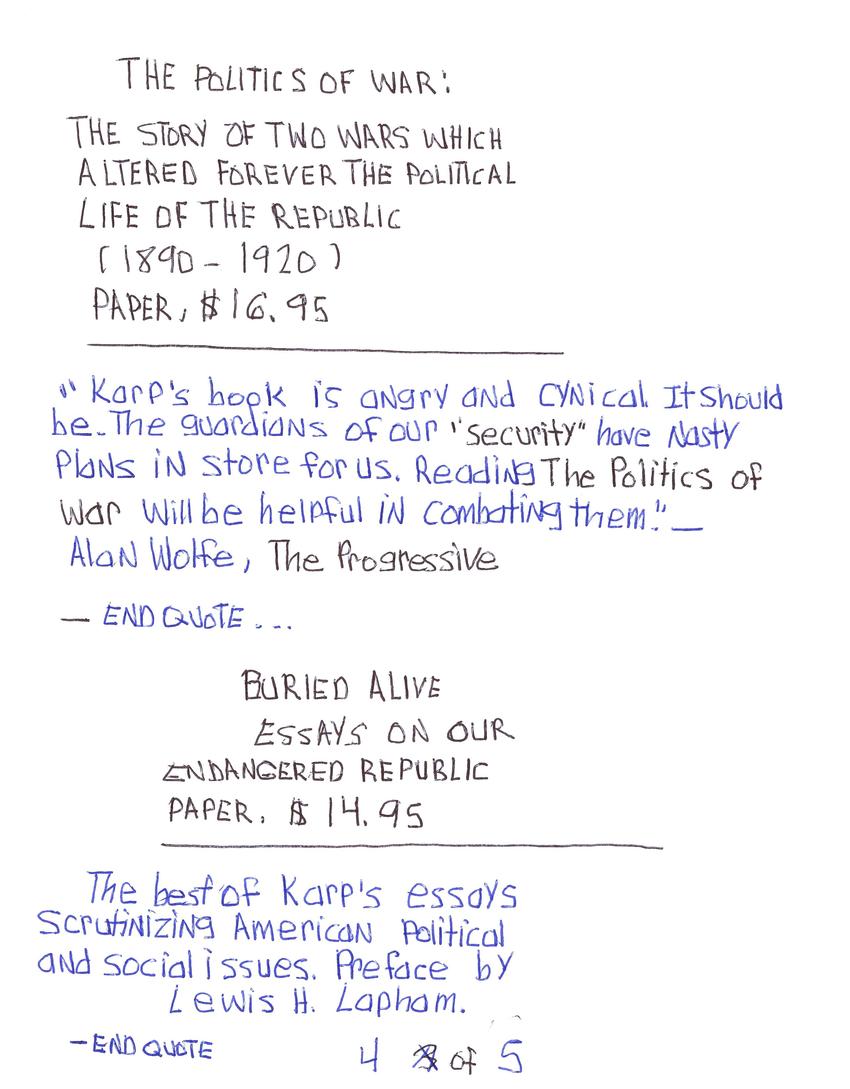 THE POLITICS OF WAR:
THE STORY OF TWO WARS WHICH
ALTERED FOREVER THE POLITICAL
LIFE OF THE REPUBLIC
(1890 - 1920)
PAPER, $16.95
"Karp's book is angry and cynical. It should
be. The guardians of our "security" have nasty
plans in store for us. Reading The Politics of
War will be helpful in combating them." —
Alan Wolfe, The Progressive
— END QUOTE...
BURIED ALIVE
ESSAYS ON OUR
ENDANGERED REPUBLIC
PAPER, $14.95
The best of Karp's essays
scrutinizing American political
and social issues. Preface by
Lewis H. Lapham.
- END QUOTE
4 of 5